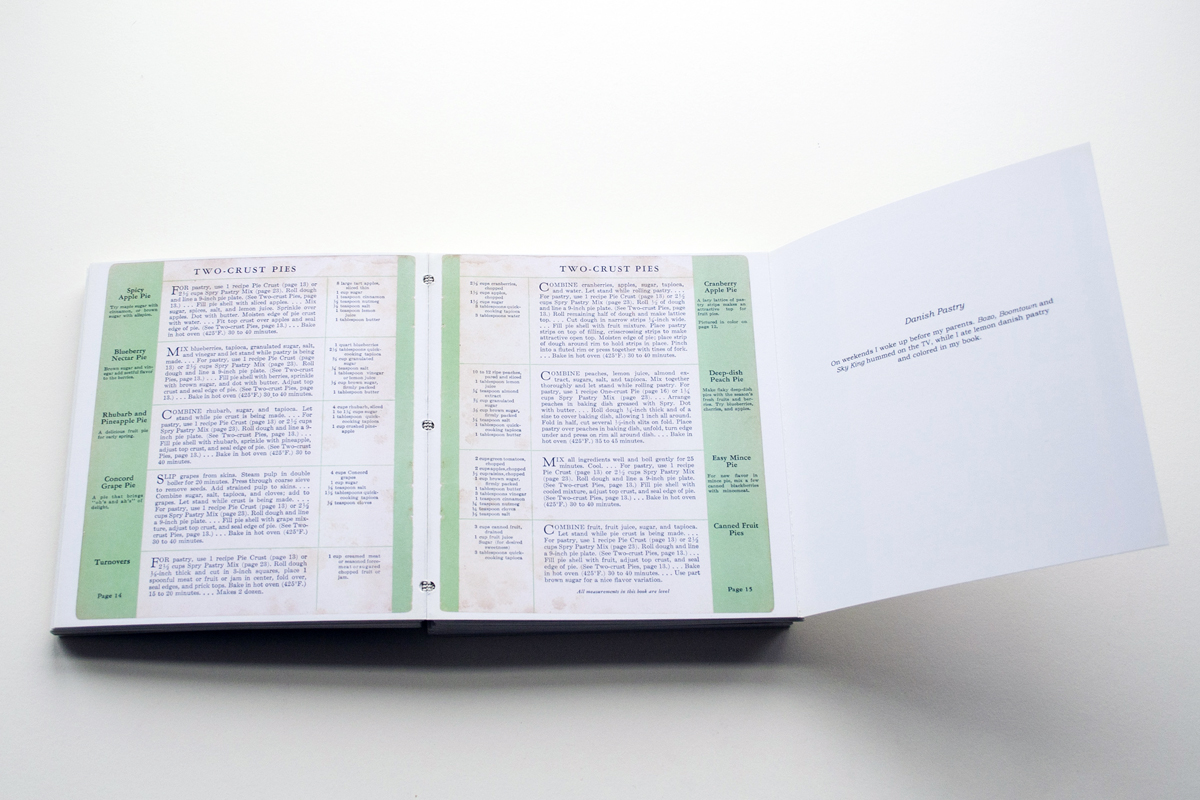 TWO-CRUST PIES
Spicy
Apple Pie
Try maple-sugar with
cinnamon, or brown
sugar with allspice.
FOR pastry, use 1 recipe Pie Crust (page 13) or
2½ cups Spry Pastry Mix (page 23). Roll dough
and line a 9-inch pie plate. (See Two-Crust Pies, page
13.) . . . Fill pie shell with sliced apples. . . . Mix
sugar, spices, salt, and lemon juice. Sprinkle over
apples. Dot with butter. Moisten edge of pie crust
with water. . . . Fit top crust over apples and seal
edge of pie. (See Two-Crust Pies, page 13.) . . . Bake
in hot oven (425°F.) 30 to 40 minutes.
sliced thin
1 cup sugar
1 teaspoon cinnamon
1 teaspoon lemon
juice
1 tablespoon butter
Blueberry
Nectar Pie
Brown sugar and vin-
egar add zestful flavor
to the berries.
MIX blueberries, tapioca, granulated sugar, salt,
and vinegar and let stand while pastry is being
made. . . . For pastry, use 1 recipe Pie Crust (page
13) or 2½ cups Spry Pastry Mix (page 23). Roll
dough and line a 9-inch pie plate. (See Two-Crust
Pies, page 13.) . . . Fill pie shell with berries, sprinkle
with brown sugar, and dot with butter. Adjust top
crust and seal edge of pie. (See Two-Crust Pies, page
13.) . . . Bake in hot oven (425°F.) 30 to 40 minutes.
1 quart blueberries
2 tablespoons quick-
cooking tapioca
¾ cup granulated
sugar
1 tablespoon vinegar
or lemon juice
firmly packed
1 tablespoon butter
Rhubarb and
Pineapple Pie
A delicious fruit pie
for early spring.
COMBINE rhubarb, sugar, and tapioca. Let
stand while pie crust is being made. . . . For
pastry, use 1 recipe Pie Crust (page 13) or 2½ cups
Spry Pastry Mix (page 23). Roll dough and line a 9-
inch pie plate. (See Two-Crust Pies, page 13.) . . .
Fill pie shell with rhubarb, sprinkle with pineapple,
adjust top crust, and seal edge of pie. (See Two-Crust
Pies, page 13.) . . . Bake in hot oven (425°F.) 30 to
40 minutes.
4 cups rhubarb, sliced
1 to 1½ cups sugar
1 tablespoon quick-
cooking tapioca
1 cup crushed pine-
apple
Concord
Grape Pie
A pie that brings
"oh's and ah's" of
delight.
SLIP grapes from skins. Steam pulp in double
boiler for 20 minutes. Press through coarse sieve
to remove seeds. Add strained pulp to skins. . . .
Combine sugar, salt, tapioca, and cloves; add to
grapes. Let stand while crust is being made. . . .
For pastry, use 1 recipe Pie Crust (page 13) or 2½
cups Spry Pastry Mix (page 23). Roll dough and line
a 9-inch pie plate. . . . Fill pie shell with grape mix-
ture, adjust top crust, and seal edge of pie. (See Two-
Crust Pies, page 13.) . . . Bake in hot oven (425°F.)
30 to 40 minutes.
4 cups Concord
grapes
1 cup sugar
¼ teaspoon salt
1½ tablespoons quick-
cooking tapioca
Turnovers
FOR pastry, use 1 recipe Pie Crust (page 13) or
2½ cups Spry Pastry Mix (page 23). Roll dough
⅛-inch thick and cut in 3-inch squares, place 1
spoonful meat or fruit or jam in center, fold over,
seal edges, and prick tops. Bake in hot oven (425°F.)
15 to 20 minutes. . . . Makes 2 dozen.
1 cup minced meat
or sugared
chopped fruit or
jam.
Page 14
TWO-CRUST PIES
chopped
2 tablespoons quick-
cooking tapioca
COMBINE cranberries, apples, sugar, tapioca,
and water. Let stand while rolling pastry. . . .
For pastry, use 1 recipe Pie Crust (page 13) or 2½
cups Spry Pastry Mix (page 23). Roll ½ of dough
and line a 9-inch pie plate. (See Two-Crust Pies, page 13.)
Roll remaining half of dough and make lattice
top. . . . Cut dough in narrow strips ¼-inch wide.
. . . Fill pie shell with fruit mixture. Place pastry
strips on top of filling, crisscrossing strips to make
attractive open top. Moisten edge of pie; place strip
of dough around rim to hold strips in place. Pinch
into a fluted rim or press together with tines of fork.
. . . Bake in hot oven (425°F.) 30 to 40 minutes.
Cranberry
Apple Pie
A lacy lattice of pas-
try strips makes an
attractive top for
fruit pies.
Pictured in color on
10 to 12 ripe peaches,
pared and sliced
1 tablespoon lemon
juice
¼ teaspoon almond
extract
¾ cup granulated
sugar
firmly packed
1 tablespoon quick-
cooking tapioca
1 tablespoon butter
COMBINE peaches, lemon juice, almond ex-
tract, sugars, salt, and tapioca. Mix together
thoroughly and let stand while rolling pastry. For
pastry, use recipe One-Crust Pie (page 16) or 1¼
cups Spry Pastry Mix (page 23). . . . Arrange
peaches in baking dish greased with Spry. Dot
with butter. . . . Roll dough ⅛-inch thick and of a
size to cover baking dish, allowing 1 inch all around.
Fold in half, cut several ½-inch slits on fold. Place
pastry over peaches in baking dish, unfold, turn edge
under and press on rim all around dish. . . . Bake in
hot oven (425°F.) 35 to 45 minutes.
Deep-dish
Peach Pie
Make flaky deep-dish
pies with the season's
fresh fruits and ber-
ries. Try blueberries,
cherries, and apples.
2 cups green tomatoes,
chopped
2 cups apples, chopped
firmly packed
2 tablespoons vinegar
1 teaspoon cinnamon
MIX all ingredients well and boil gently for 25
minutes. Cool. . . . For pastry, use 1 recipe
Pie Crust (page 13) or 2½ cups Spry Pastry Mix
(page 23). Roll dough and line a 9-inch pie plate.
(See Two-Crust Pies, page 13.) . . . Fill pie shell with
cooled mixture, adjust top crust, and seal edge of pie.
(See Two-Crust Pies, page 13.) . . . Bake in hot oven
(425°F.) 30 to 40 minutes.
Easy Mince
Pie
For new flavor in
mince pie, mix a few
canned blackberries
with mincemeat.
3 cups canned fruit,
drained
1 cup fruit juice
Sugar (for desired
sweetness)
2 tablespoons quick-
cooking tapioca
COMBINE fruit, fruit juice, sugar, and tapioca.
Let stand while pie crust is being made. . . .
For pastry, use 1 recipe Pie Crust (page 13) or 2½
cups Spry Pastry Mix (page 23). Roll dough and line
a 9-inch pie plate. (See Two-Crust Pies, page 13.) . . .
Fill pie shell with fruit, adjust top crust, and seal
edge of pie. (See Two-Crust Pies, page 13.) . . . Bake
in hot oven (425°F.) 30 to 40 minutes. . . . Use part
brown sugar for a nice flavor variation.
Canned Fruit
Pies
All measurements in this book are level
Page 15
Danish Pastry
On weekends I woke up before my parents. Bozo, Boomtown and
Sky King hummed on the TV, while I ate lemon danish pastry
and colored in my book.